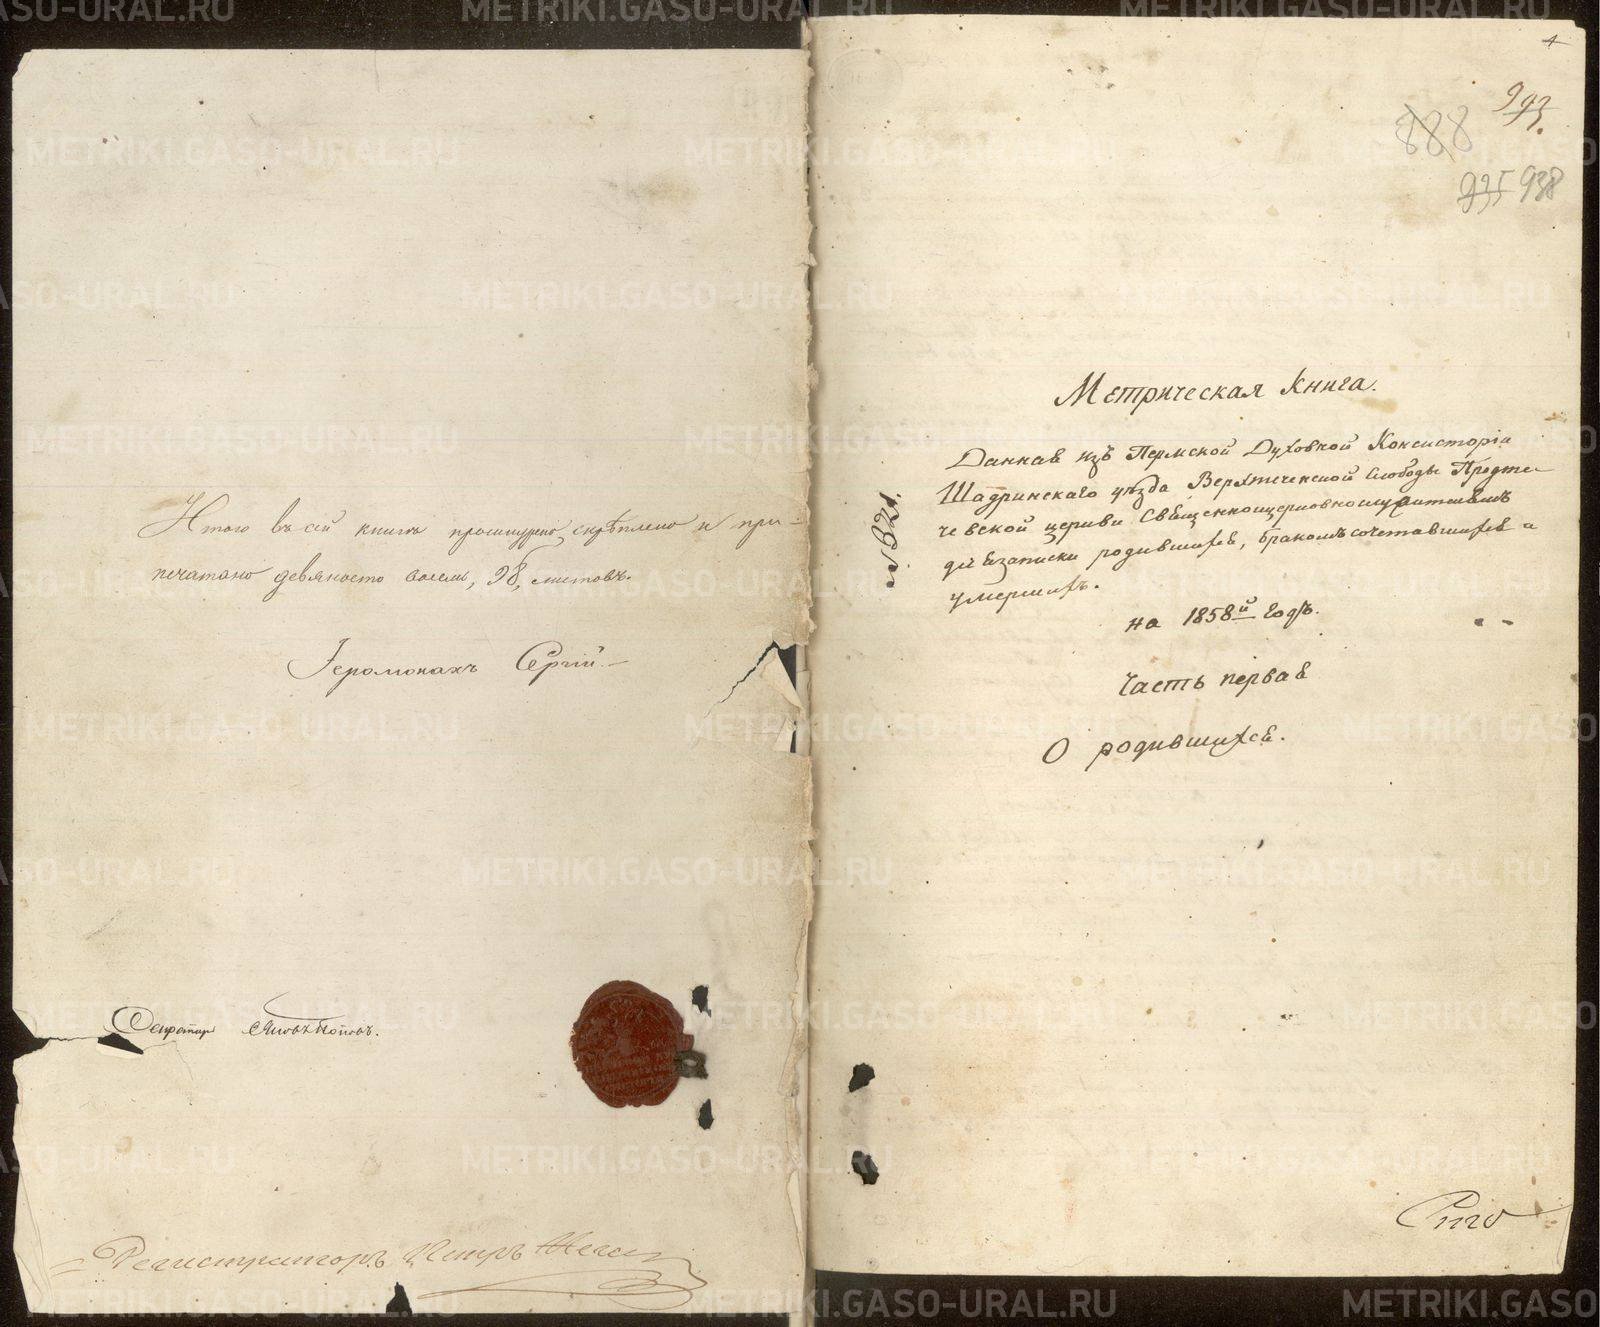 Итого въ сей книгѣ прошнурено, скрѣплено и при-
печатано девяносто восемь, 98, листовъ.
Іеромонахъ Сергій
Секретарь Яковъ Поповъ.
Регистраторъ Петръ
4
993.
888
935 938
Метрическая Книга.
Данная изъ Пермской Духовной Консисторіи
Шадринскаго уѣзда Верхтеченской Слободы Предте-
чевской церкви Священноцерковнослужителямъ
для записки родившихся, бракомъ сочетавшихся и
умершихъ.
на 1858й годъ.
Часть первая
О родившихся.
№ 321.
METRIKI.GASO-URAL.RU